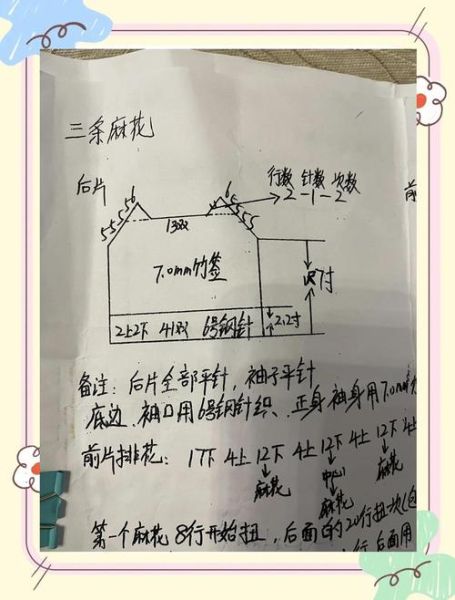 三条麻花
后片
前
行数 针数 次数
2-1-2
5556
6
13双
7.0mm竹签
7寸
2上2下 41双 6号钢针
2.2寸
备注：后片全部平针，袖子平针
底边、袖口用6号钢针织、正身袖身用7.0mm
前片排花：17下 4上 12下 4上 12下 4上 12下 4上
麻花
中心
麻花
麻花
第一个麻花8行开始扭，后面的20行扭次(包
行后面用